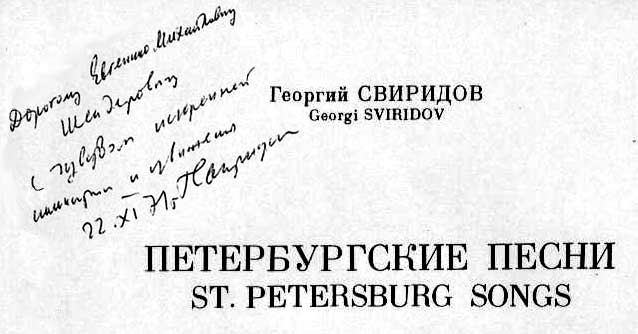 Дорогому Евгению Михайловичу
Шендеровичу
с чувством искренней
симпатии и уважения
22. XI 71 г. Г Свиридов
Георгий СВИРИДОВ
Georgi SVIRIDOV
ПЕТЕРБУРГСКИЕ ПЕСНИ
ST. PETERSBURG SONGS